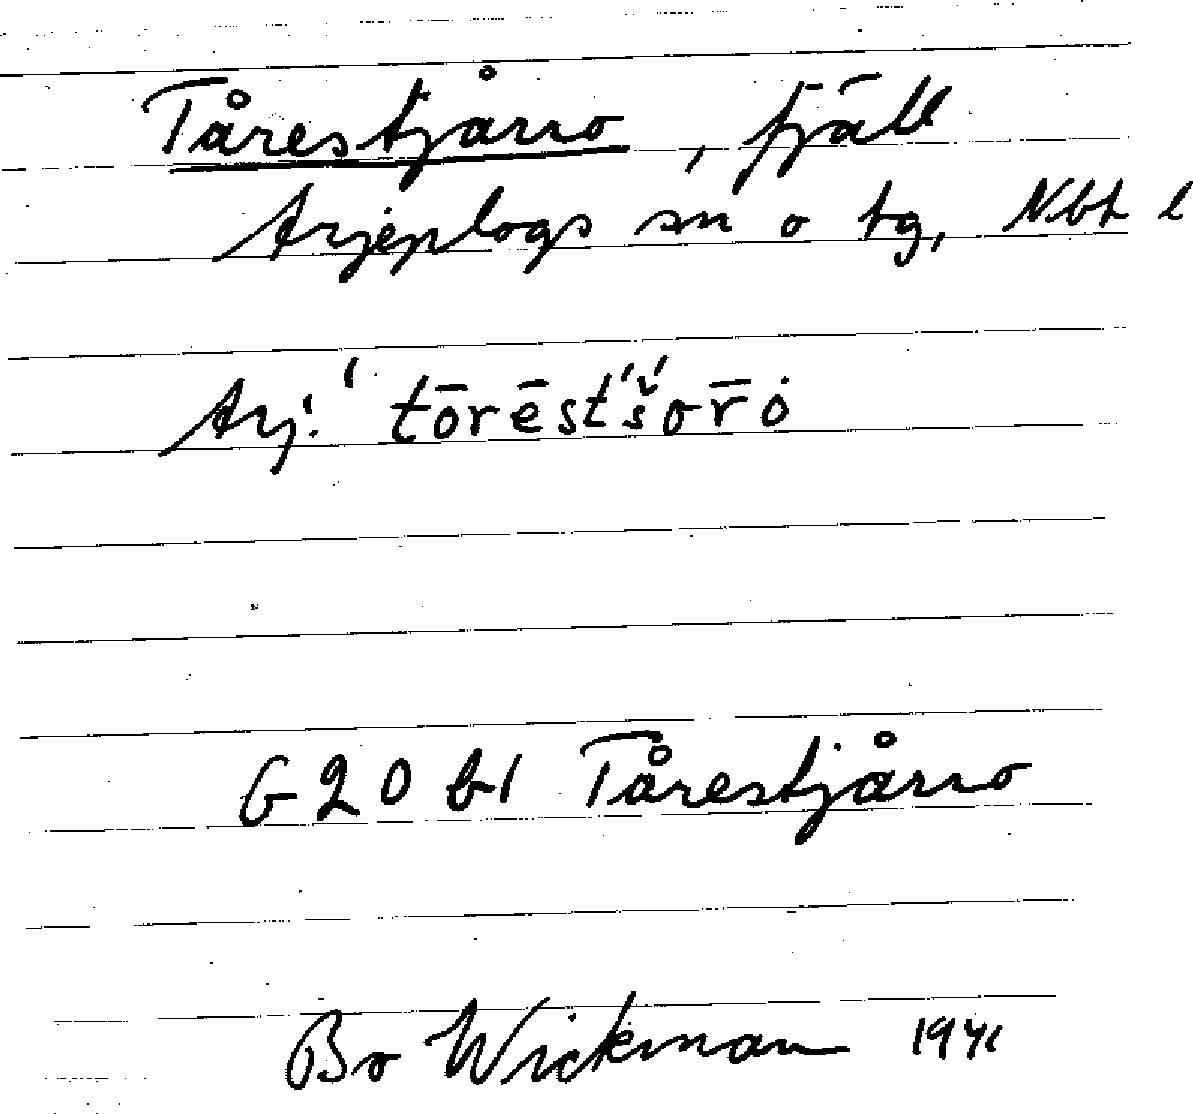 Tårestjårro, fjäll
Arjeplogs sn o tg, Nbt l
Arj. ˈtōrēst́ˈš́or̄ȯ
G20 b1 Tårestjårro
Bo Wickman 1941